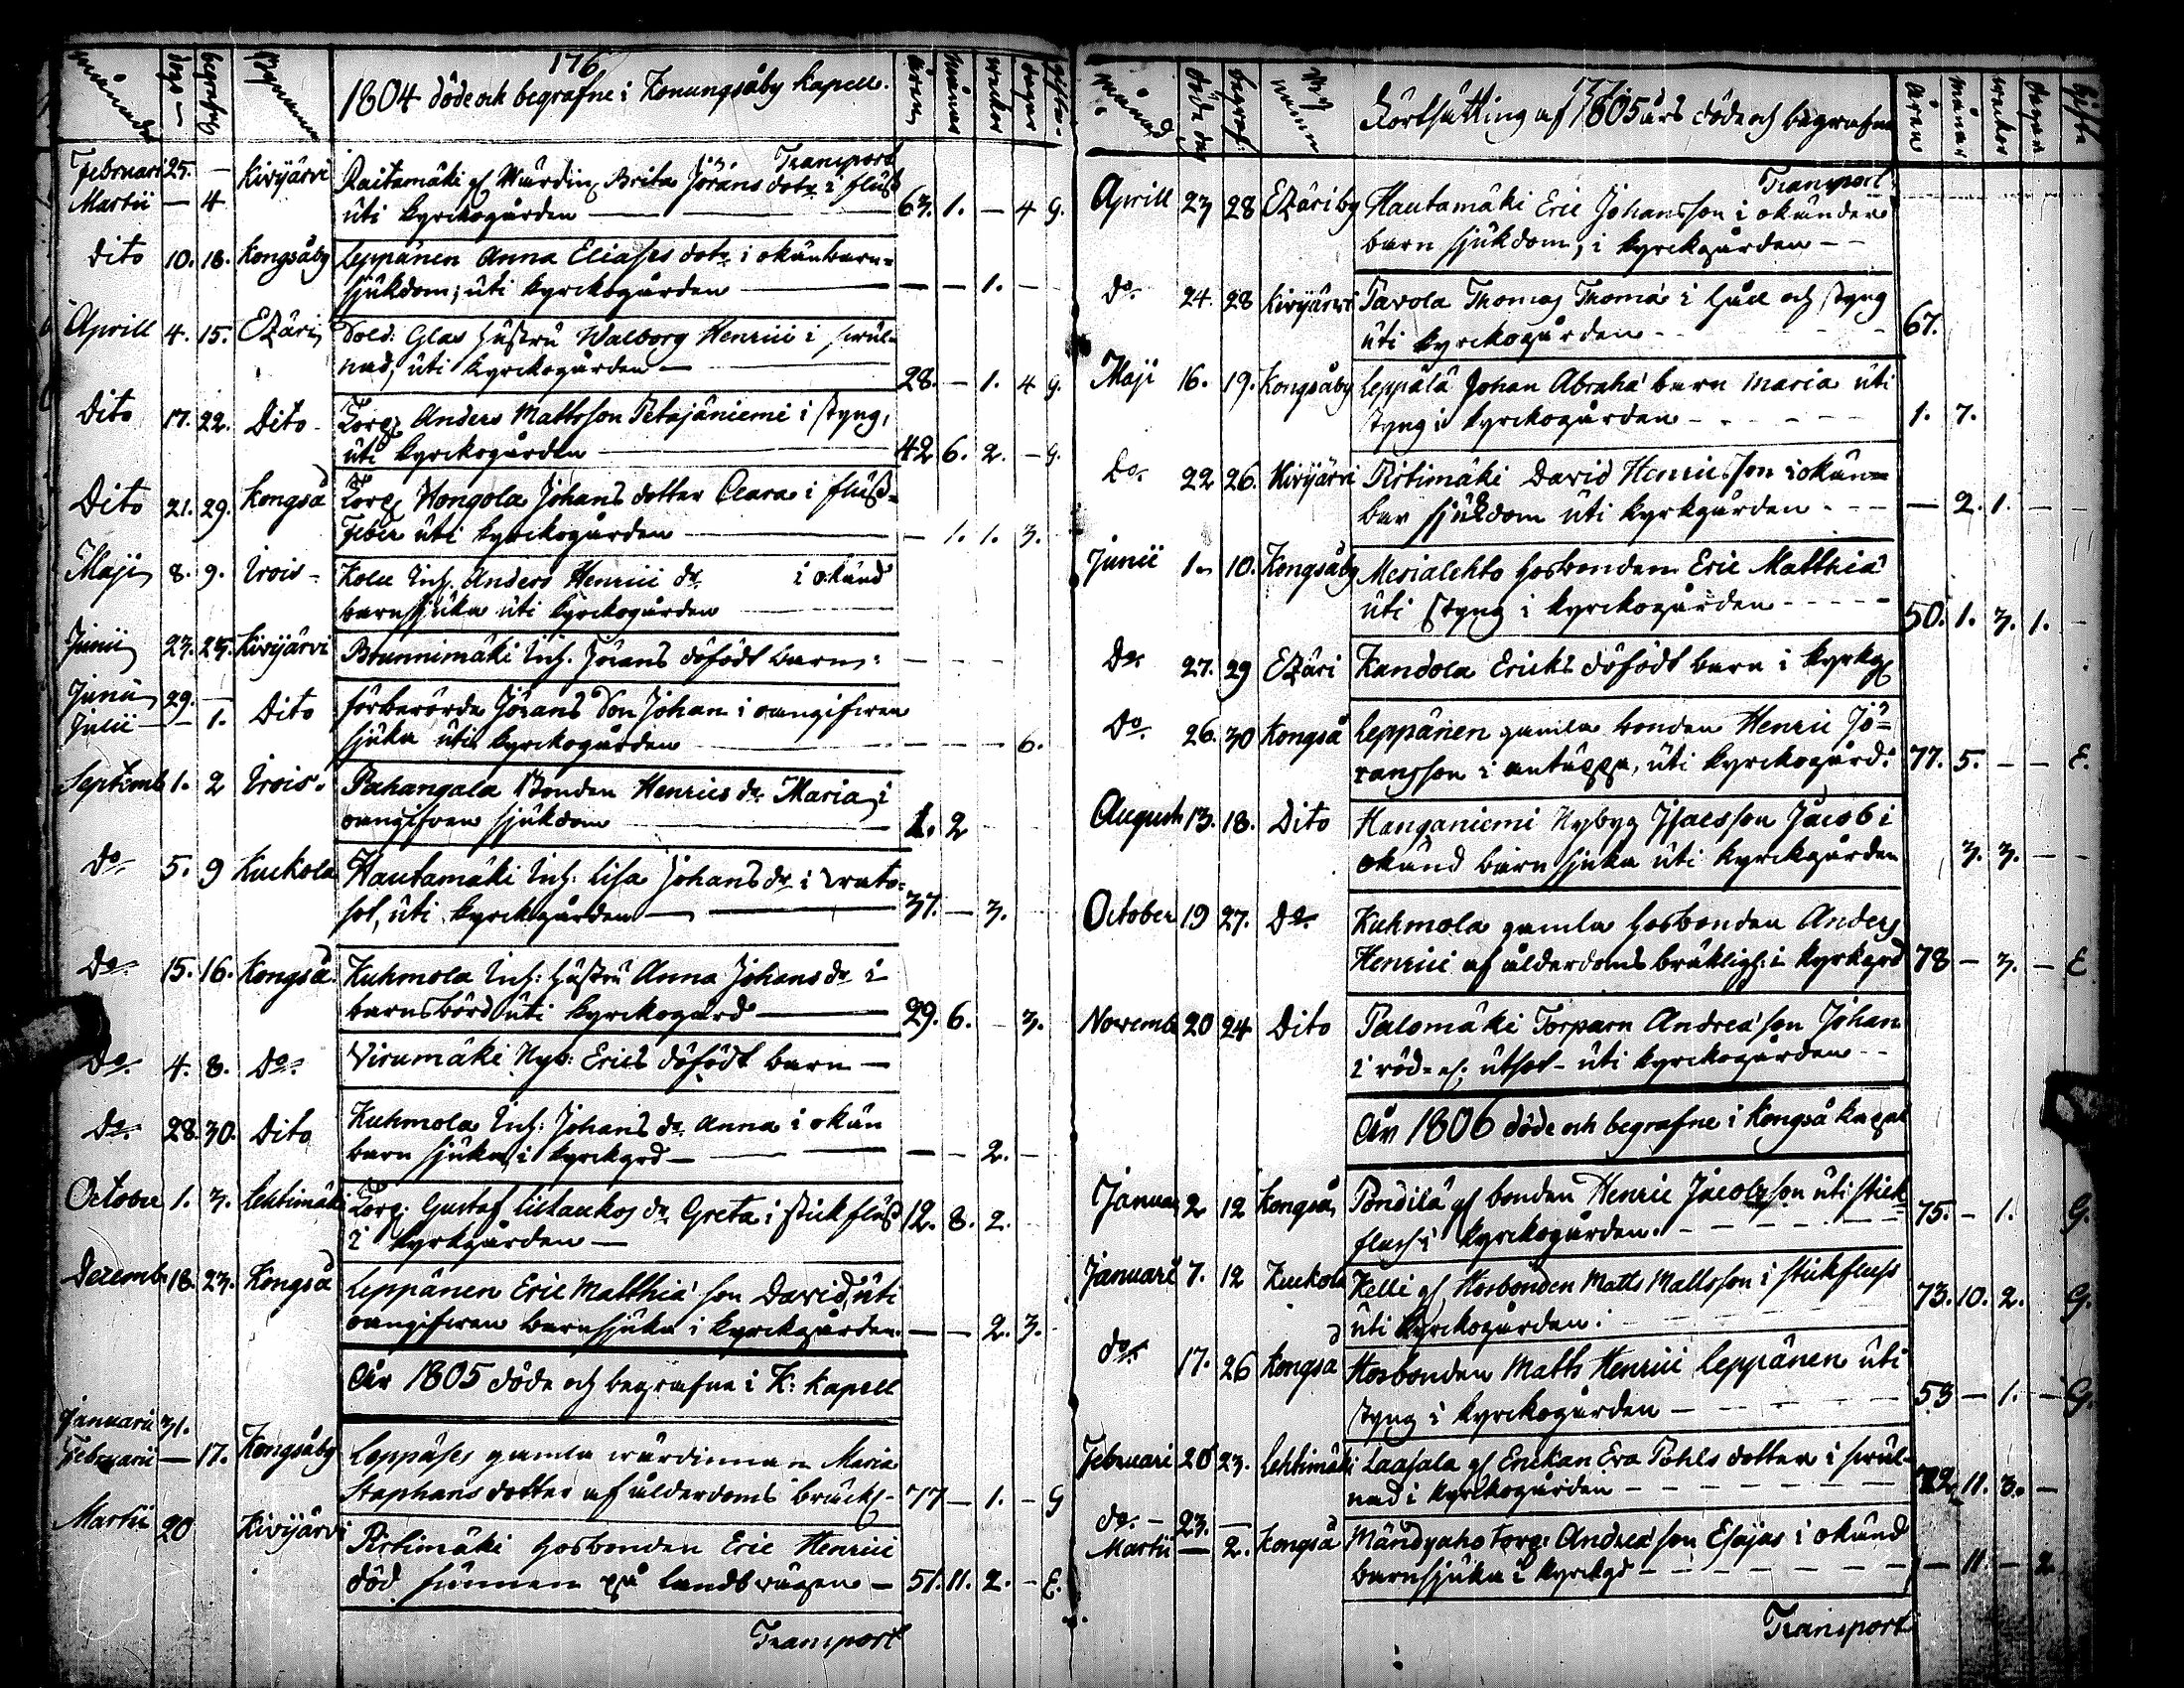 176
månader döde begrafne Bynamn 1804 döde och begrafne i Konungsåby kapell. åren månar weckor dagar gifta
Transport
Februari 25. — Kivijärvi Raitamäki gl Wärdin, Brita Jörans dotr i flüss
Martii — 4 uti kyrckogården — 63. 1. — 4 G.
Dito 10. 18. Kongsåby Leppänen Anna Eliases dotr i okän barn-
sjukdom; uti kyrckogården — — — 1. —
Aprill 4. 15. Etzäri Sold: Glas hustru Walborg Henrici i swul-
nad, uti kyrckogården — 28. — 1. 4 G.
Dito 17. 22. Dito Torp. Anders Mattsson Petäjäniemi i styng,
uti kyrckogården — 42 6. 2. — G.
Dito 21. 29. Kongså Torp Hongola Johans dotter Clara i flüss-
feber uti kyrckogården — — 1. 1. 3.
Maji 8. 9. Irois Inh. Anders Henrici dr i okänd
barnsjuka uti kyrckogården —
Junii 23. 25. Kivijärvi Inh. Jörans dödfödt barn — — —
Junii 29. — förberörde Jörans Son Johan i oangifwen
Julii — 1. Dito sjuka uti kyrckogården — — — 6.
Septemb 1. 2 Irois. Pahangala Bonden Henrics dr Maria i
oangifven sjukdom — 1. 2
Do 5. 9 Kuckola Hautamäki Inh: Lisa Johans dr i
sot, uti kyrckogården — 37. — 3.
Do 15. 16. Kongså. Kuhmola Inh: hustru Anna Johans dr i
barnsbörd uti kyrckogård — 29. 6. — 3.
Do. 4. 8. Do. Virumäki Nyb: Erics dödfödt barn —
Do. 28. 30. Dito Kuhmola Inh: Johans dr Anna i okän
barn sjuka, i kyrckgrd — — — 2. —
October 1. 3. Lehtimäki Torp. Gustaf dr Greta i stickflüss 12. 8. 2.
i kyrkgården —
Decemb 18. 23. Kongså Leppänen Eric Matthiæ son David, uti
oangifwen barnsjuka i kyrckgården. — — 2. 3.
År 1805 döde och begrafne i K: kapell
Januarii 31.
Februarii — 17. Kongsåby Leppäses gamla wärdinnan Maria
Staphans dotter af ålderdoms bräckl— 77 — 1. — G
Martii 20 Kivijärvi Pirtimäki Hosbonden Eric Henrici
död funnen på landswägen — 51. 11. 2. — E.
Transport
177
månad döde begraf: By namn Fortsättning af 1805 års döde och begrafne åren månar weckor dagar gifta
Transport
Aprill 23 28 Etzäriby Hautamäki Eric Johansson i okänder
barn sjukdom, i kyrckgården — —
Do. 24. 28 Kivijärvi Pavola Thomas Thomæ i håll och styng
uti kyrckogården — 67.
Maji 16. 19. Kongsåby Leppälä Johan Abrahæ barn Maria uti
styng i kyrckogården — 1. 7.
Do. 22 26. Kivijärvi Pirtimäki David Henricsson i okän-
bar sjukdom uti kyrkgården — — 2. 1. — —
Junii 1. 10. Kongsåby Merialehto hosbonden Eric Matthiæ
uti styng i kyrckogården — 50. 1. 3. 1. —
Do 27. 29 Etzäri Kandola Ericks dödfödt barn i kyrkg
Do. 26. 30 Kongså Leppänen gamla bonden Henric Jö-
ransson i uti kyrckogård: 77. 5. — — E.
August 13. 18. Dito Hanganiemi Nybyg Isacsson Jacob i
okänd barn sjuka uti kyrckgården 3. 3. — —
October 19 27. Do. Kuhmola gamla hosbonden Anders
Henrici af ålderdoms bräkligh: i kyrkgrd 78 — 3. — E
Novemb 20 24 Dito Palomäki Torparn Andreæ son Johan
i röd- utsot- uti kyrckogården — —
År 1806 döde och begrafne i Kongså kapel
Januari 2 12 Kongså gl bonden Henric Jacobsson uti stick
fluss i kyrckogården. — 75. — 1. G.
Januari 7. 12 Kuckola Kelli gl Hosbonden Matts Mattsson i stickfluss
uti kyrckogården: — 73. 10. 2. G.
do. 17. 26 Kongså Hosbonden Matts Henrici Leppänen uti
styng i kyrckogården — 53 — 1. — G.
Februari 20 23. Lehtimäki Laasala gl Enckan Eva Påhls dotter i swul-
nad i kyrckogården — 72 11. 3. —
do. — 23. —
Martii — 2. Kongså Mändyaho torp: Andreæ son Esajas i okänd
barnsjuka i kyrckgd — — 11 — 2
Transport